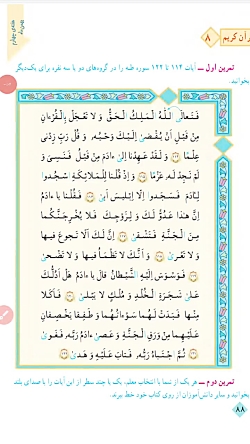 قرآن کریم
۸
تمرین اول ـ آیات ۱۱۴ تا ۱۲۲ سوره طه را در گروه‌های دو یا سه نفره برای یک‌دیگر
بخوانید.
فَتَعالَى اللّٰهُ المَلِكُ الحَقُّ وَ لا تَعجَل بِالقُرءانِ
مِن قَبلِ اَن يُقضىٰ اِلَيكَ وَحيُهُ، وَ قُل رَبِّ زِدنى
عِلمًا ﴿۱۱۴﴾ وَ لَقَد عَهِدنا اِلىٰ ءادَمَ مِن قَبلُ فَنَسِىَ وَ
لَم نَجِد لَهُ عَزمًا ﴿۱۱۵﴾ وَ اِذ قُلنا لِلمَلائِكَةِ اسجُدوا
لِءادَمَ فَسَجَدوا اِلّا اِبليسَ اَبىٰ ﴿۱۱۶﴾ فَقُلنا يا ءادَمُ
اِنَّ هٰذا عَدُوٌّ لَكَ وَ لِزَوجِكَ فَلا يُخرِجَنَّكُما
مِنَ الجَنَّةِ فَتَشقىٰ ﴿۱۱۷﴾ اِنَّ لَكَ اَلّا تَجوعَ فيها
وَ لا تَعرىٰ ﴿۱۱۸﴾ وَ اَنَّكَ لا تَظمَؤُا فيها وَ لا تَضحىٰ ﴿۱۱۹﴾
فَوَسوَسَ اِلَيهِ الشَّيطانُ قالَ يا ءادَمُ هَل اَدُلُّكَ
عَلىٰ شَجَرَةِ الخُلدِ وَ مُلكٍ لا يَبلىٰ ﴿۱۲۰﴾ فَاَكَلا
مِنها فَبَدَت لَهُما سَوءاتُهُما وَ طَفِقا يَخصِفانِ
عَلَيهِما مِن وَرَقِ الجَنَّةِ وَ عَصىٰ ءادَمُ رَبَّهُ، فَغَوىٰ
﴿۱۲۱﴾ ثُمَّ اجتَباهُ رَبُّهُ، فَتابَ عَلَيهِ وَ هَدىٰ ﴿۱۲۲﴾
تمرین دوم ـ هر یک از شما با انتخاب معلم، یک یا چند سطر از این آیات را با صدای بلند
بخوانید و سایر دانش‌آموزان از روی کتاب خود خط ببرند.
۸۸